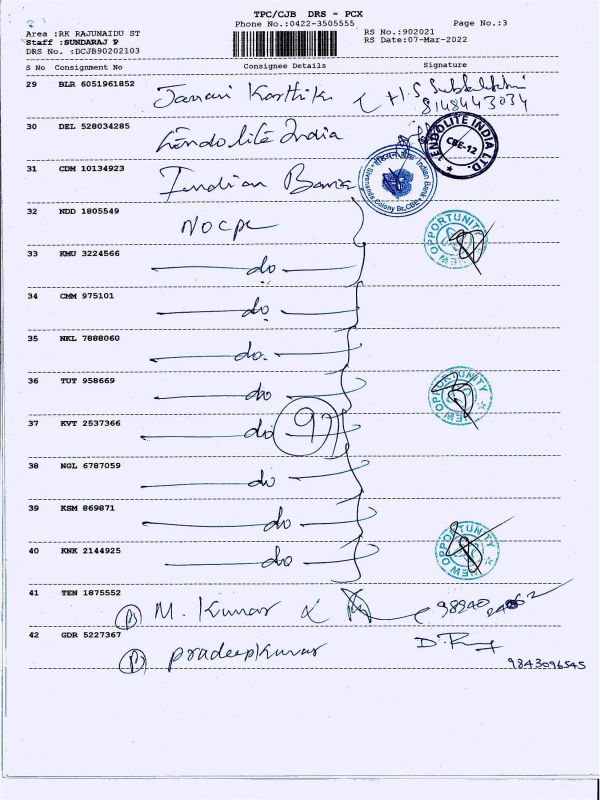 TPC/CJB DRS - PCX
Phone No.:0422-3505555
Page No.:3
Area :RK RAJUNAIDU ST
RS No.:902021
Staff :SUNDARAJ P
RS Date:07-Mar-2022
DRS No. :DCJB90202103
S No Consignment No Consignee Details Signature
29 BLR 6051961852 Janani Karthik
8148443034
30 DEL 528034285 Endolite India
ENDOLITE INDIA LTD.
CBE-12
31 CDM 10134923 Indian Bank
Indian Bank
Colony Br. CBE
32 NDD 1805549 NOCPL
NEW OPPORTUNITY
33 KMU 3224566 do
34 CMM 975101 do
35 NKL 7888060 do
36 TUT 958669 do
NEW OPPORTUNITY
37 KVT 2537366 do
97
38 NGL 6787059 do
39 KSM 869871 do
40 KNK 2144925 do
NEW OPPORTUNITY
41 TEN 1875552 P M. Kumar
42 GDR 5227367 P Pradeepkumar
9843096545